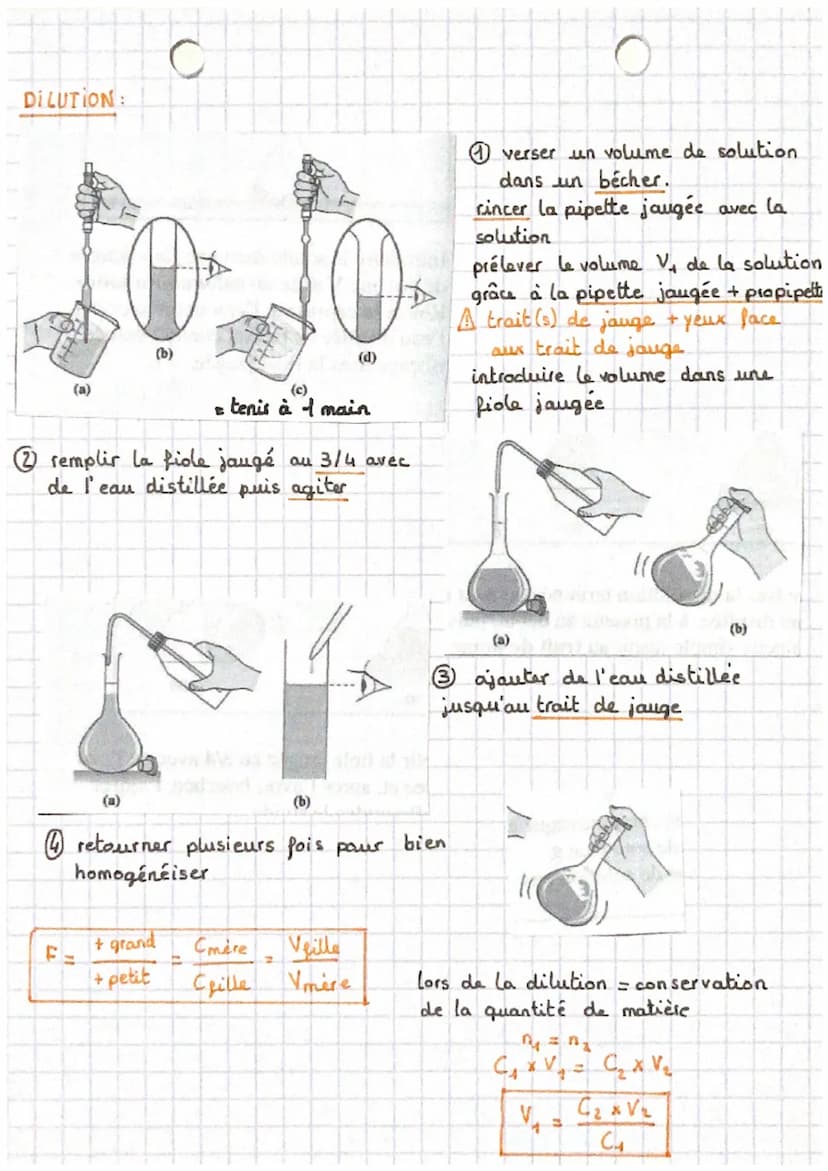 DILUTION :
(a)
(b)
(c)
(d)
= tenir à 1 main
① verser un volume de solution
dans un bécher.
rincer la pipette jaugée avec la
solution
prélever le volume V₁ de la solution
grâce à la pipette jaugée + propipett
⚠ trait(s) de jauge + yeux face
aux trait de jauge
introduire le volume dans une
fiole jaugée
② remplir la fiole jaugé au 3/4 avec
de l'eau distillée puis agiter
(a)
(b)
③ ajouter de l'eau distillée
jusqu'au trait de jauge
(a)
(b)
④ retourner plusieurs fois pour bien
homogénéiser
F = + grand / + petit = Cmère / Cfille = Vfille / Vmère
lors de la dilution = conservation
de la quantité de matière
n₁ = n₂
C₁ x V₁ = C₂ x V₂
V₁ = C₂ x V₂ / C₁